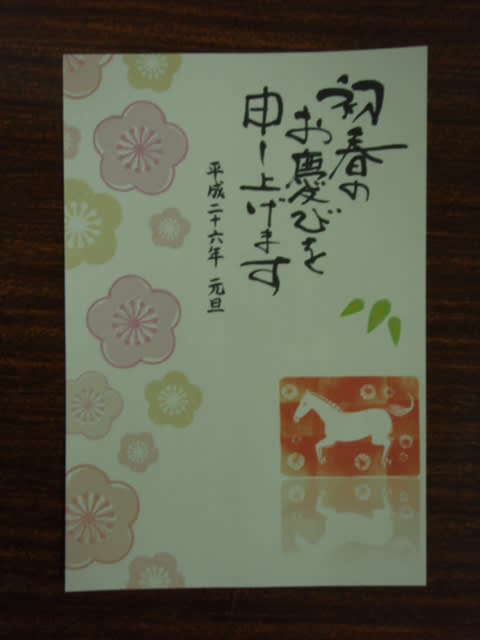 初春の
お慶びを
申し上げます
平成二十六年 元旦